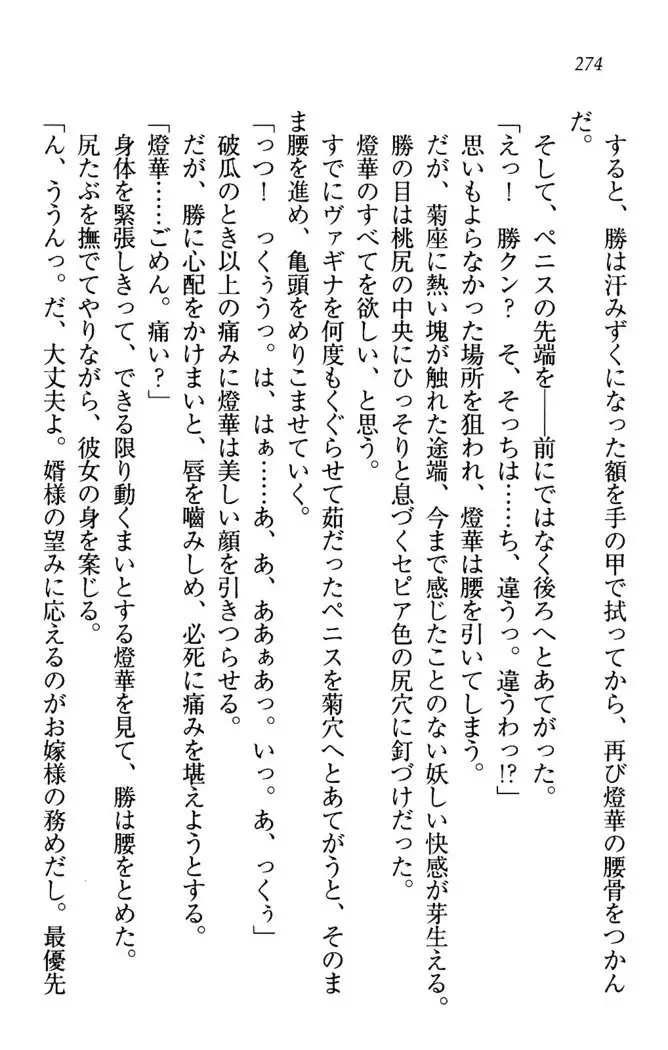 274
すると、勝は汗みずくになった額を手の甲で拭ってから、再び燈華の腰骨をつかん
だ。
そして、ペニスの先端を――前にではなく後ろへとあてがった。
「えっ！　勝クン？　そ、そっちは……ち、違うっ。違うわっ!?」
思いもよらなかった場所を狙われ、燈華は腰を引いてしまう。
だが、菊座に熱い塊が触れた途端、今まで感じたことのない妖しい快感が芽生える。
勝の目は桃尻の中央にひっそりと息づくセピア色の尻穴に釘づけだった。
燈華のすべてを欲しい、と思う。
すでにヴァギナを何度もくぐらせて茹だったペニスを菊穴へとあてがうと、そのま
ま腰を進め、亀頭をめりこませていく。
「っつ！　っくぅうっ。は、はぁ……あ、あ、ああぁあっ。いっ。あ、っくぅ」
破瓜のとき以上の痛みに燈華は美しい顔を引きつらせる。
だが、勝に心配をかけまいと、唇を嚙みしめ、必死に痛みを堪えようとする。
「燈華……ごめん。痛い？」
身体を緊張しきって、できる限り動くまいとする燈華を見て、勝は腰をとめた。
尻たぶを撫でてやりながら、彼女の身を案じる。
「ん、ううんっ。だ、大丈夫よ。婿様の望みに応えるのがお嫁様の務めだし。最優先